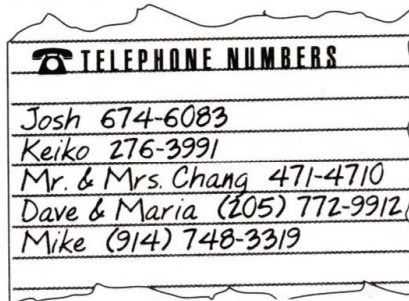 TELEPHONE NUMBERS
Josh 674-6083
Keiko 276-3991
Mr. & Mrs. Chang 471-4710
Dave & Maria (205) 772-9912
Mike (914) 748-3319